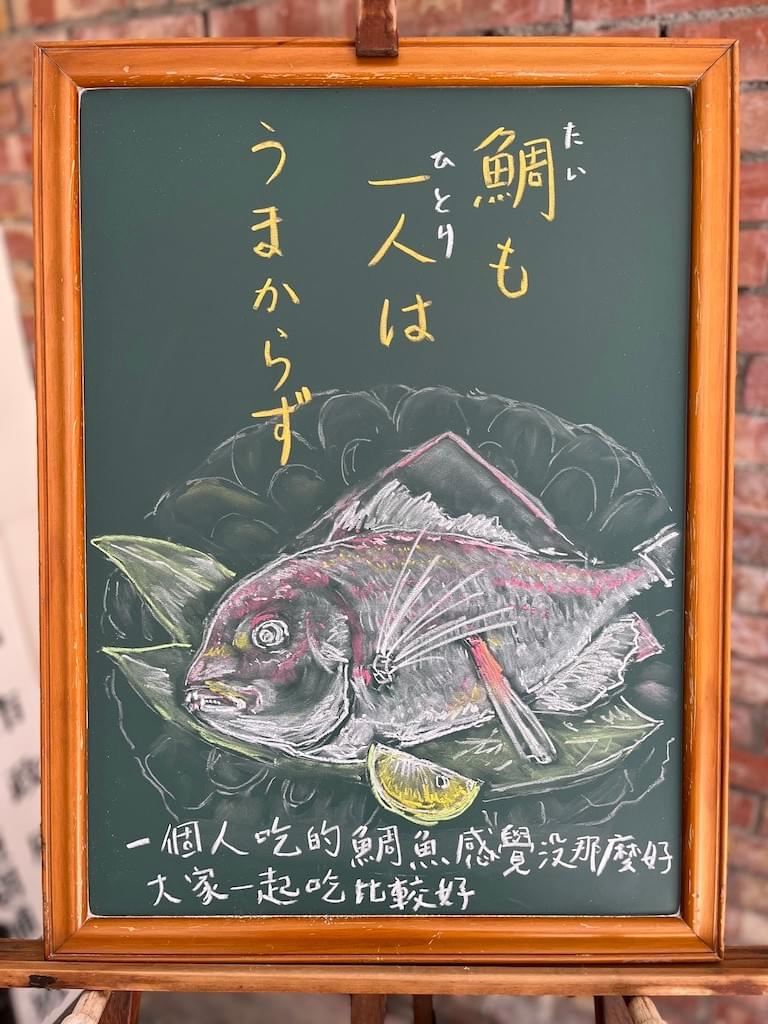 鯛も
たい
一人は
ひとり
うまからず
一個人吃的鯛魚感覺没那麼好
大家一起吃比較好